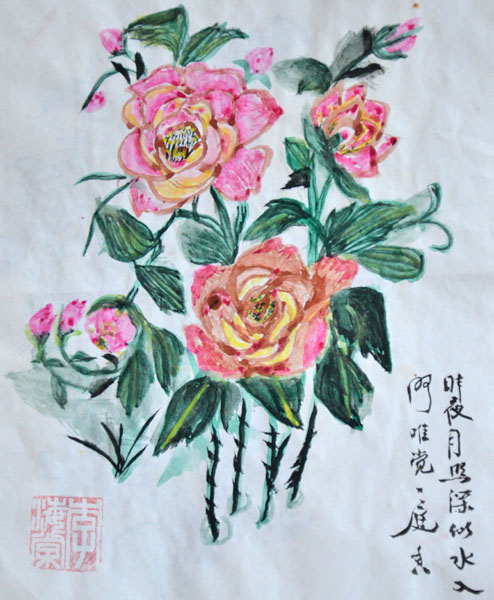 昨夜月照深似水入
门唯觉一庭香